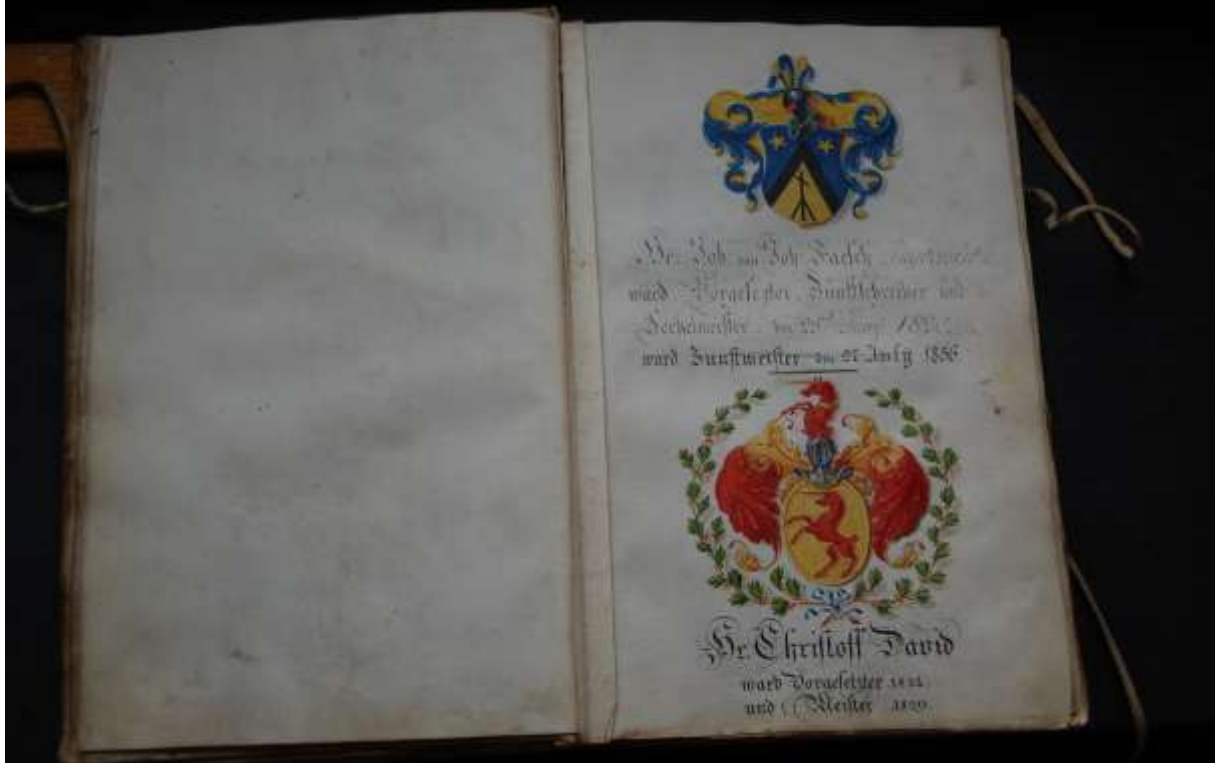 Hr. Joh. Joh Faesch
ward Vorgesezter, Zunftschreiber und
Seckelmeister, den
ward Zunftmeister den 27 July 1836
Hr. Christoff David
ward Vorgesetzter
und Meister 1820.